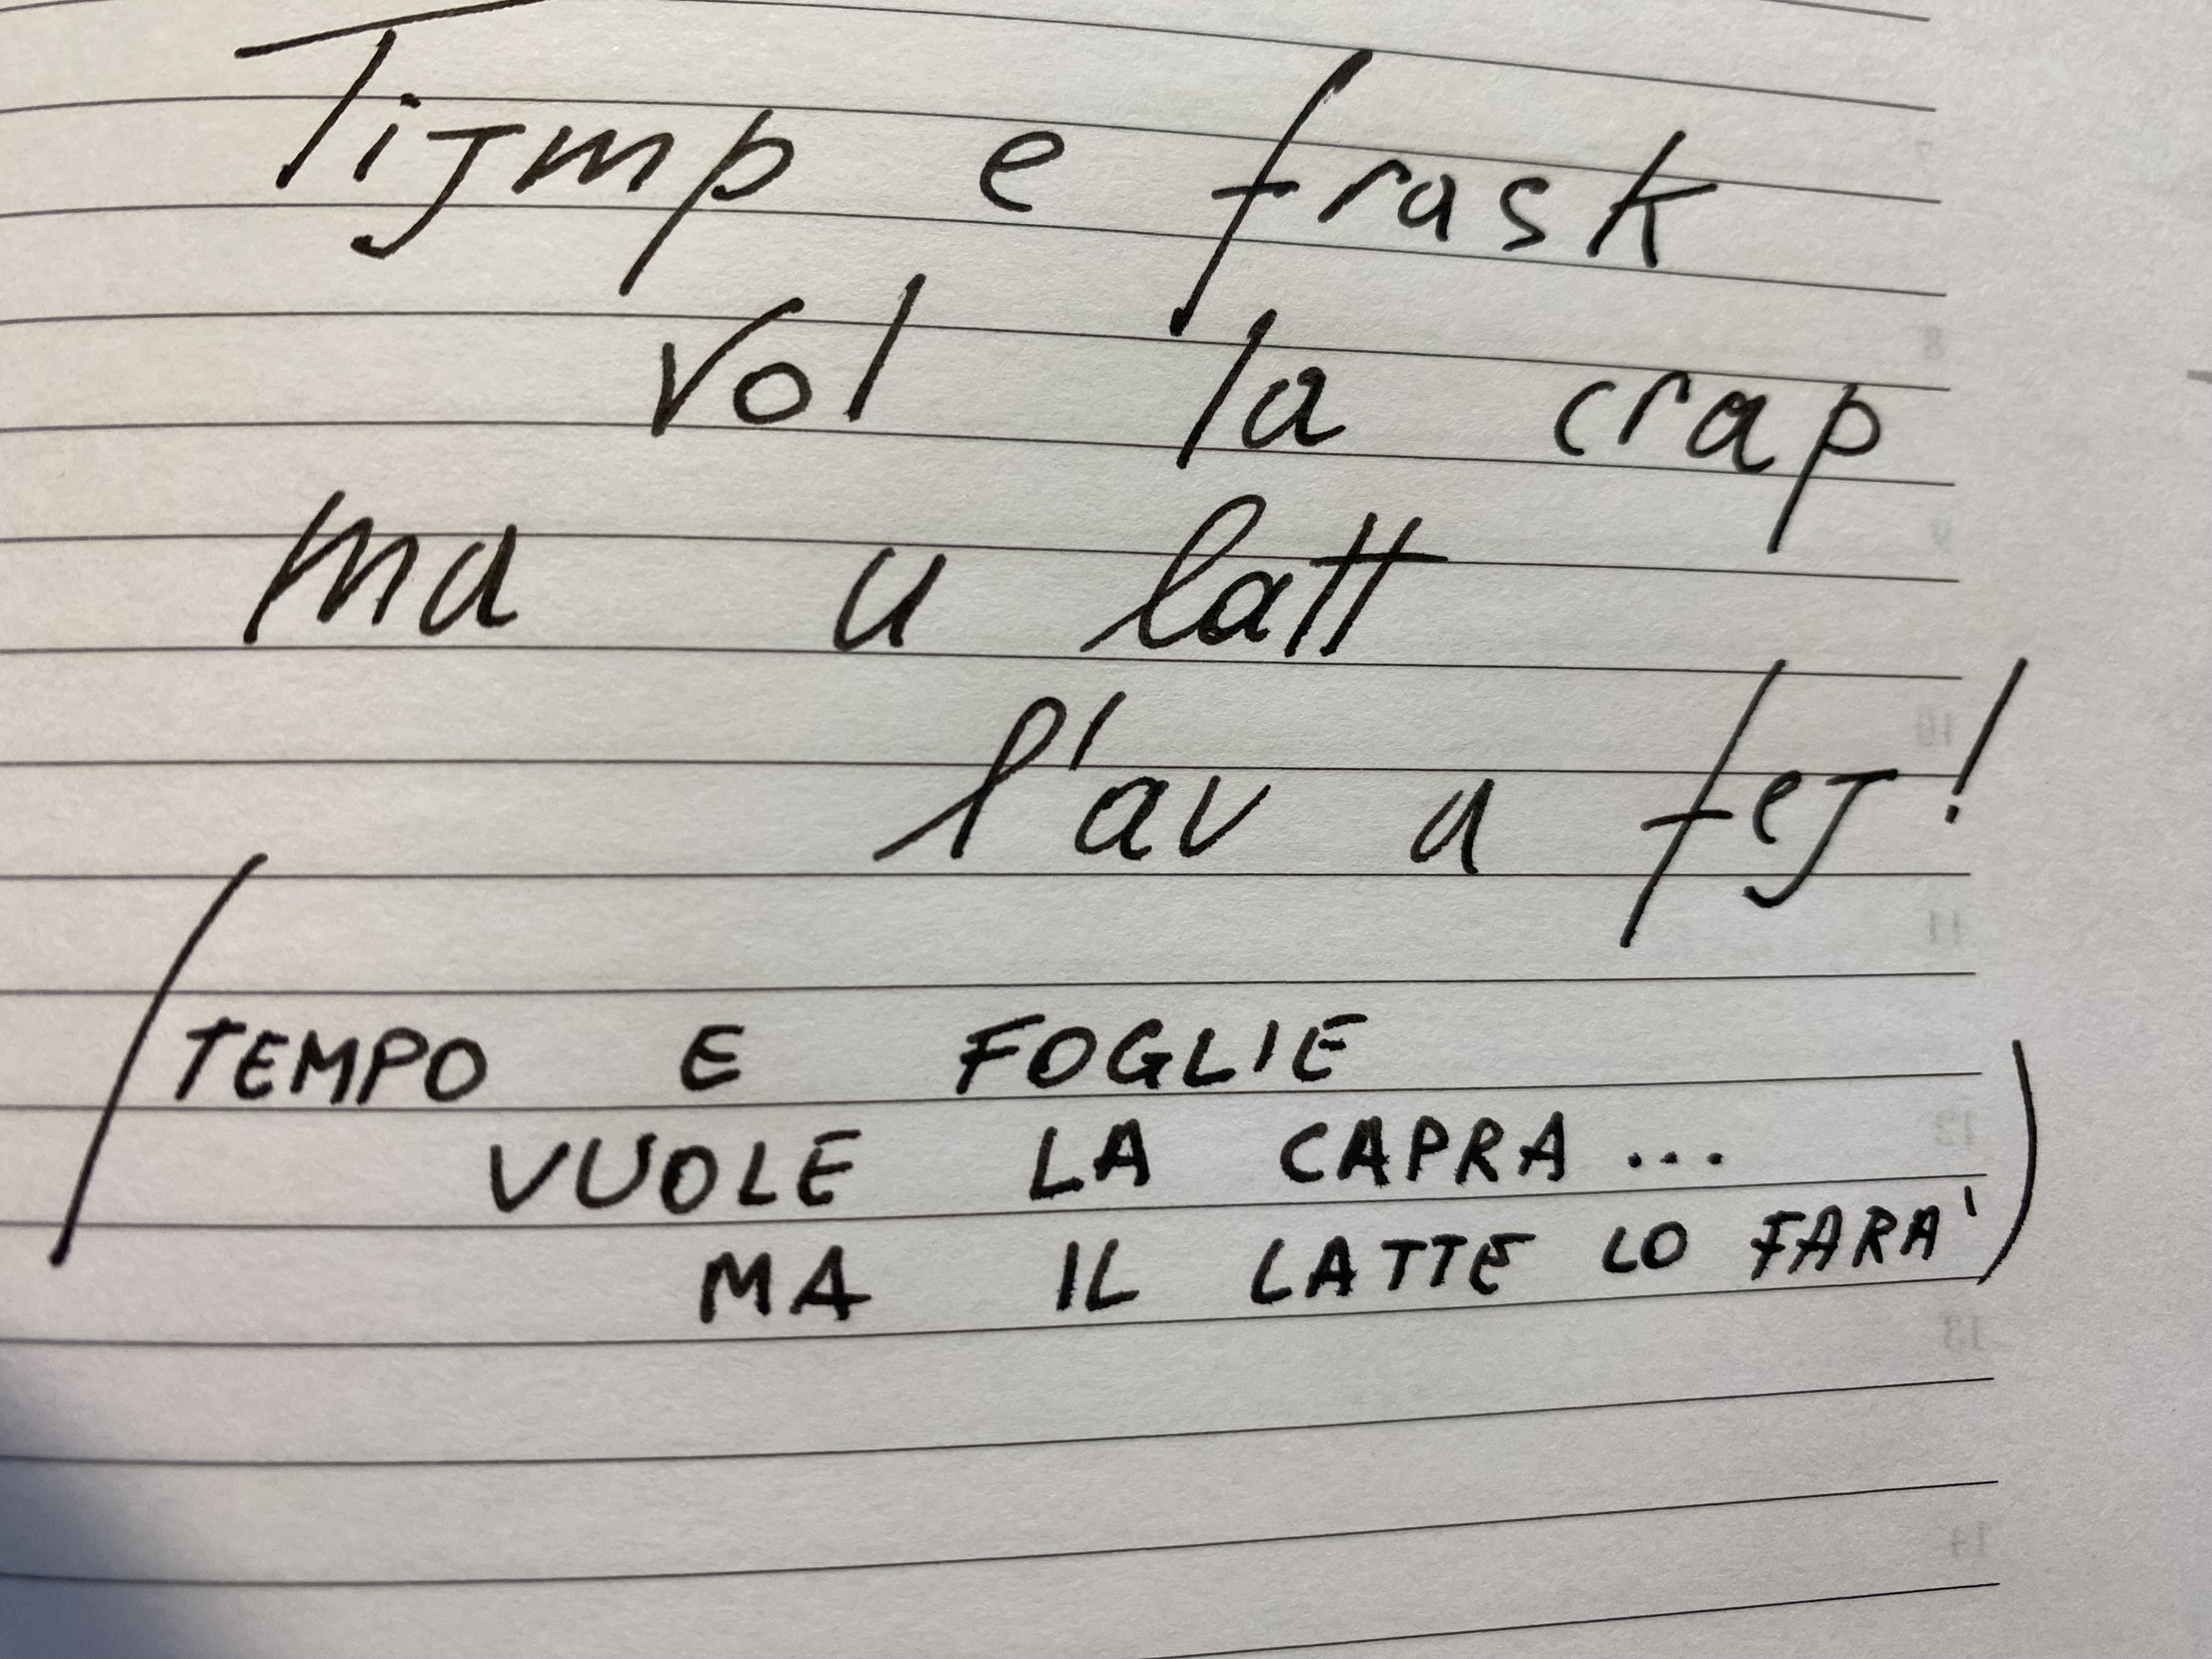 Tijmp e frask
vol la crap
ma u latt
l'av a fej!
(TEMPO E FOGLIE
VUOLE LA CAPRA...
MA IL LATTE LO FARA')
7
8
9
10
11
12
13
14